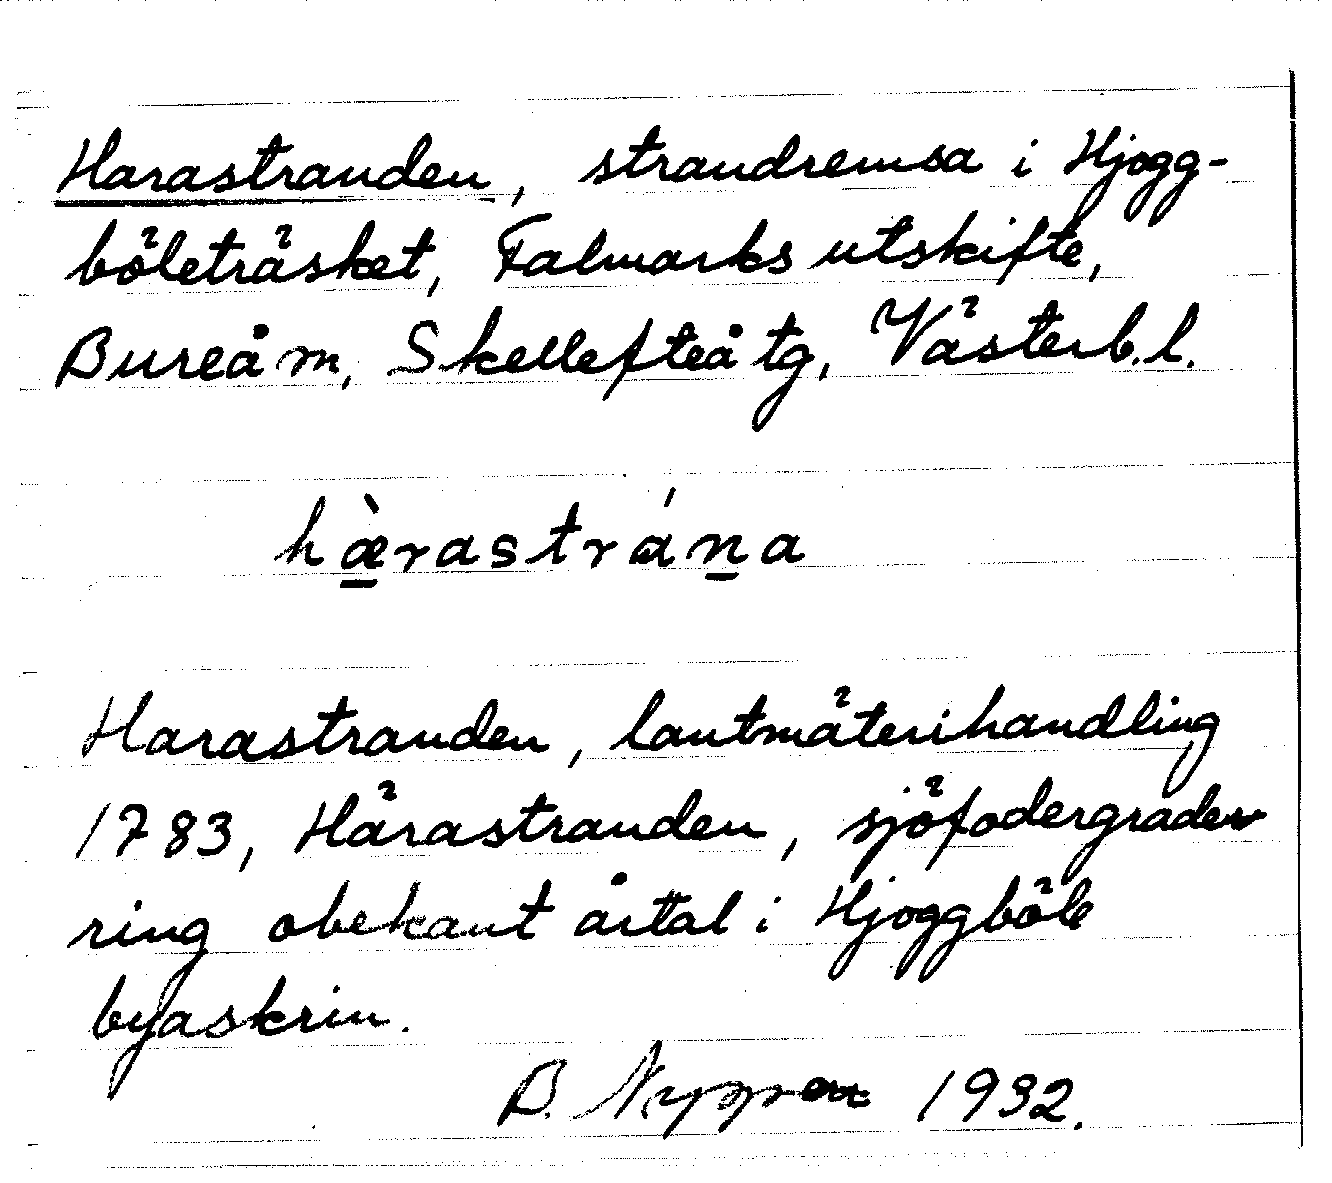 Harastranden, strandremsa i Hjogg-
böleträsket, Falmarks utskifte,
Bureå m, Skellefteå tg, Västerb. l.
hæ̱̀rastráṉa
Harastranden, lantmäterihandling
1783, Härastranden, sjöfodergrade
ring obekant årtal i Hjoggböle
byaskrin.
B. 1932.